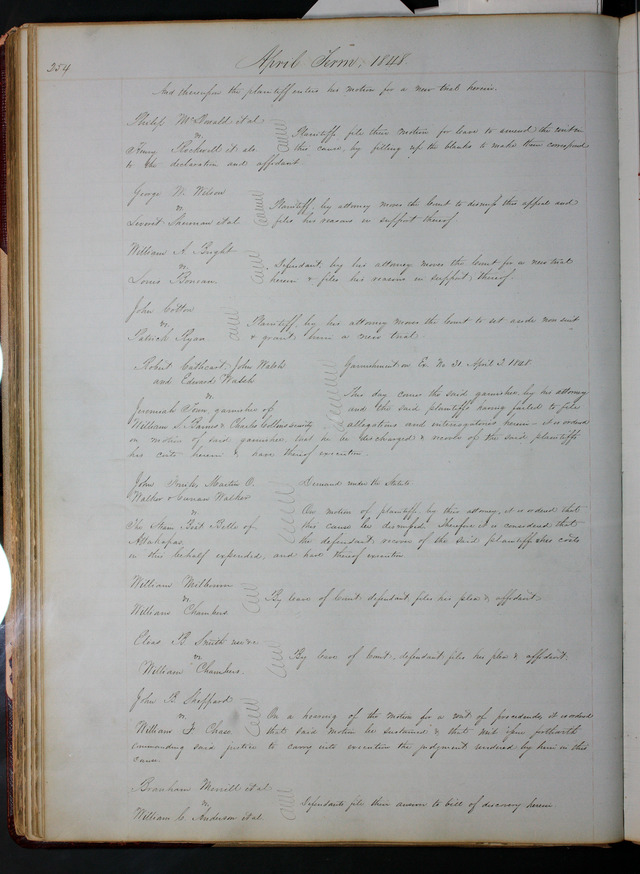 254
April Term, 1848
And thereupon the plaintiff enters his motion for a new trial herein.
Philip McDonald et al
vs
Henry Rockwell et als
Plaintiffs file their motion for leave to amend the writ in
this cause, by filling up the blanks to make them correspond
to the declaration and affidavit.
George W. Wilson
vs
Sherman et al
Plaintiff, by attorney moves the Court to dismiss this appeal and
files his reasons in support thereof.
William A. Bright
vs
Louis
Defendant, by his attorney moves the Court for a new trial
herein & files his reasons in support, thereof.
John Cotton
vs
Patrick Ryan
Plaintiff, by his attorney moves the Court to set aside non suit
& grant him a new trial.
Robert Cathcart, John Walsh
and Edward Walsh
vs
Jeremiah garnishee of
William S. & Charles Collins
Garnishment on Ex. No 31 April 3. 1848
This day came the said garnishee, by his attorney
and the said plaintiffs having failed to file
allegations and interrogatories herein it is ordered
on motion of said garnishee, that he be discharged & recover of the said plaintiffs
his costs herein & have thereof execution.
John Martin O.
Walker & Walker
vs
The Steam Boat Belle of
Attakapas
Demand under the Statute.
On motion of plaintiffs by their attorney, it is ordered that
this cause be dismissed. Therefore it is considered that
the defendant recover of the said plaintiffs her costs
in this behalf expended, and have thereof execution
William Milburn
vs
William Chambers
By leave of Court, defendant files his plea & affidavit.
B. Smith
vs
William Chambers.
By leave of Court, defendant files his plea & affidavit.
John B. Sheppard
vs
William F. Chase
On a hearing of the motion for a writ of procedendo, it is ordered
that said motion be sustained & that writ issue forthwith
commanding said justice to carry into execution the judgment rendered by him in this
cause.
Branham Merrill et al
vs
William C. Anderson et al
Defendants file their answer to bill of discovery herein.